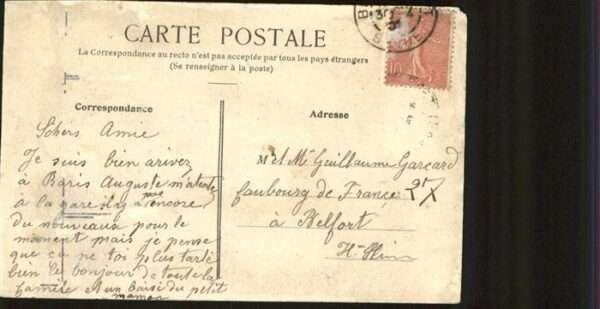 CARTE POSTALE
La Correspondance au recto n'est pas acceptée par tous les pays étrangers
(Se renseigner à la poste)
Correspondance
Adresse
Schers Amie
Je suis bien arivez
à Baris Auguste m'atent
à la gare il y a pas encore
du nouveaux pour le
moment mais je pense
que ca ne toi plus tarté
bien le bonjour de toute la
famile et un baisé du petit
maman
M et Me Guillaume Garcard
faubourg de France 27
à Belfort
Ht Rhin